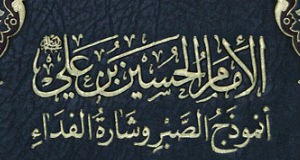 الإمام الحسين بن علي
أنموذج الصبر وشارة الفداء